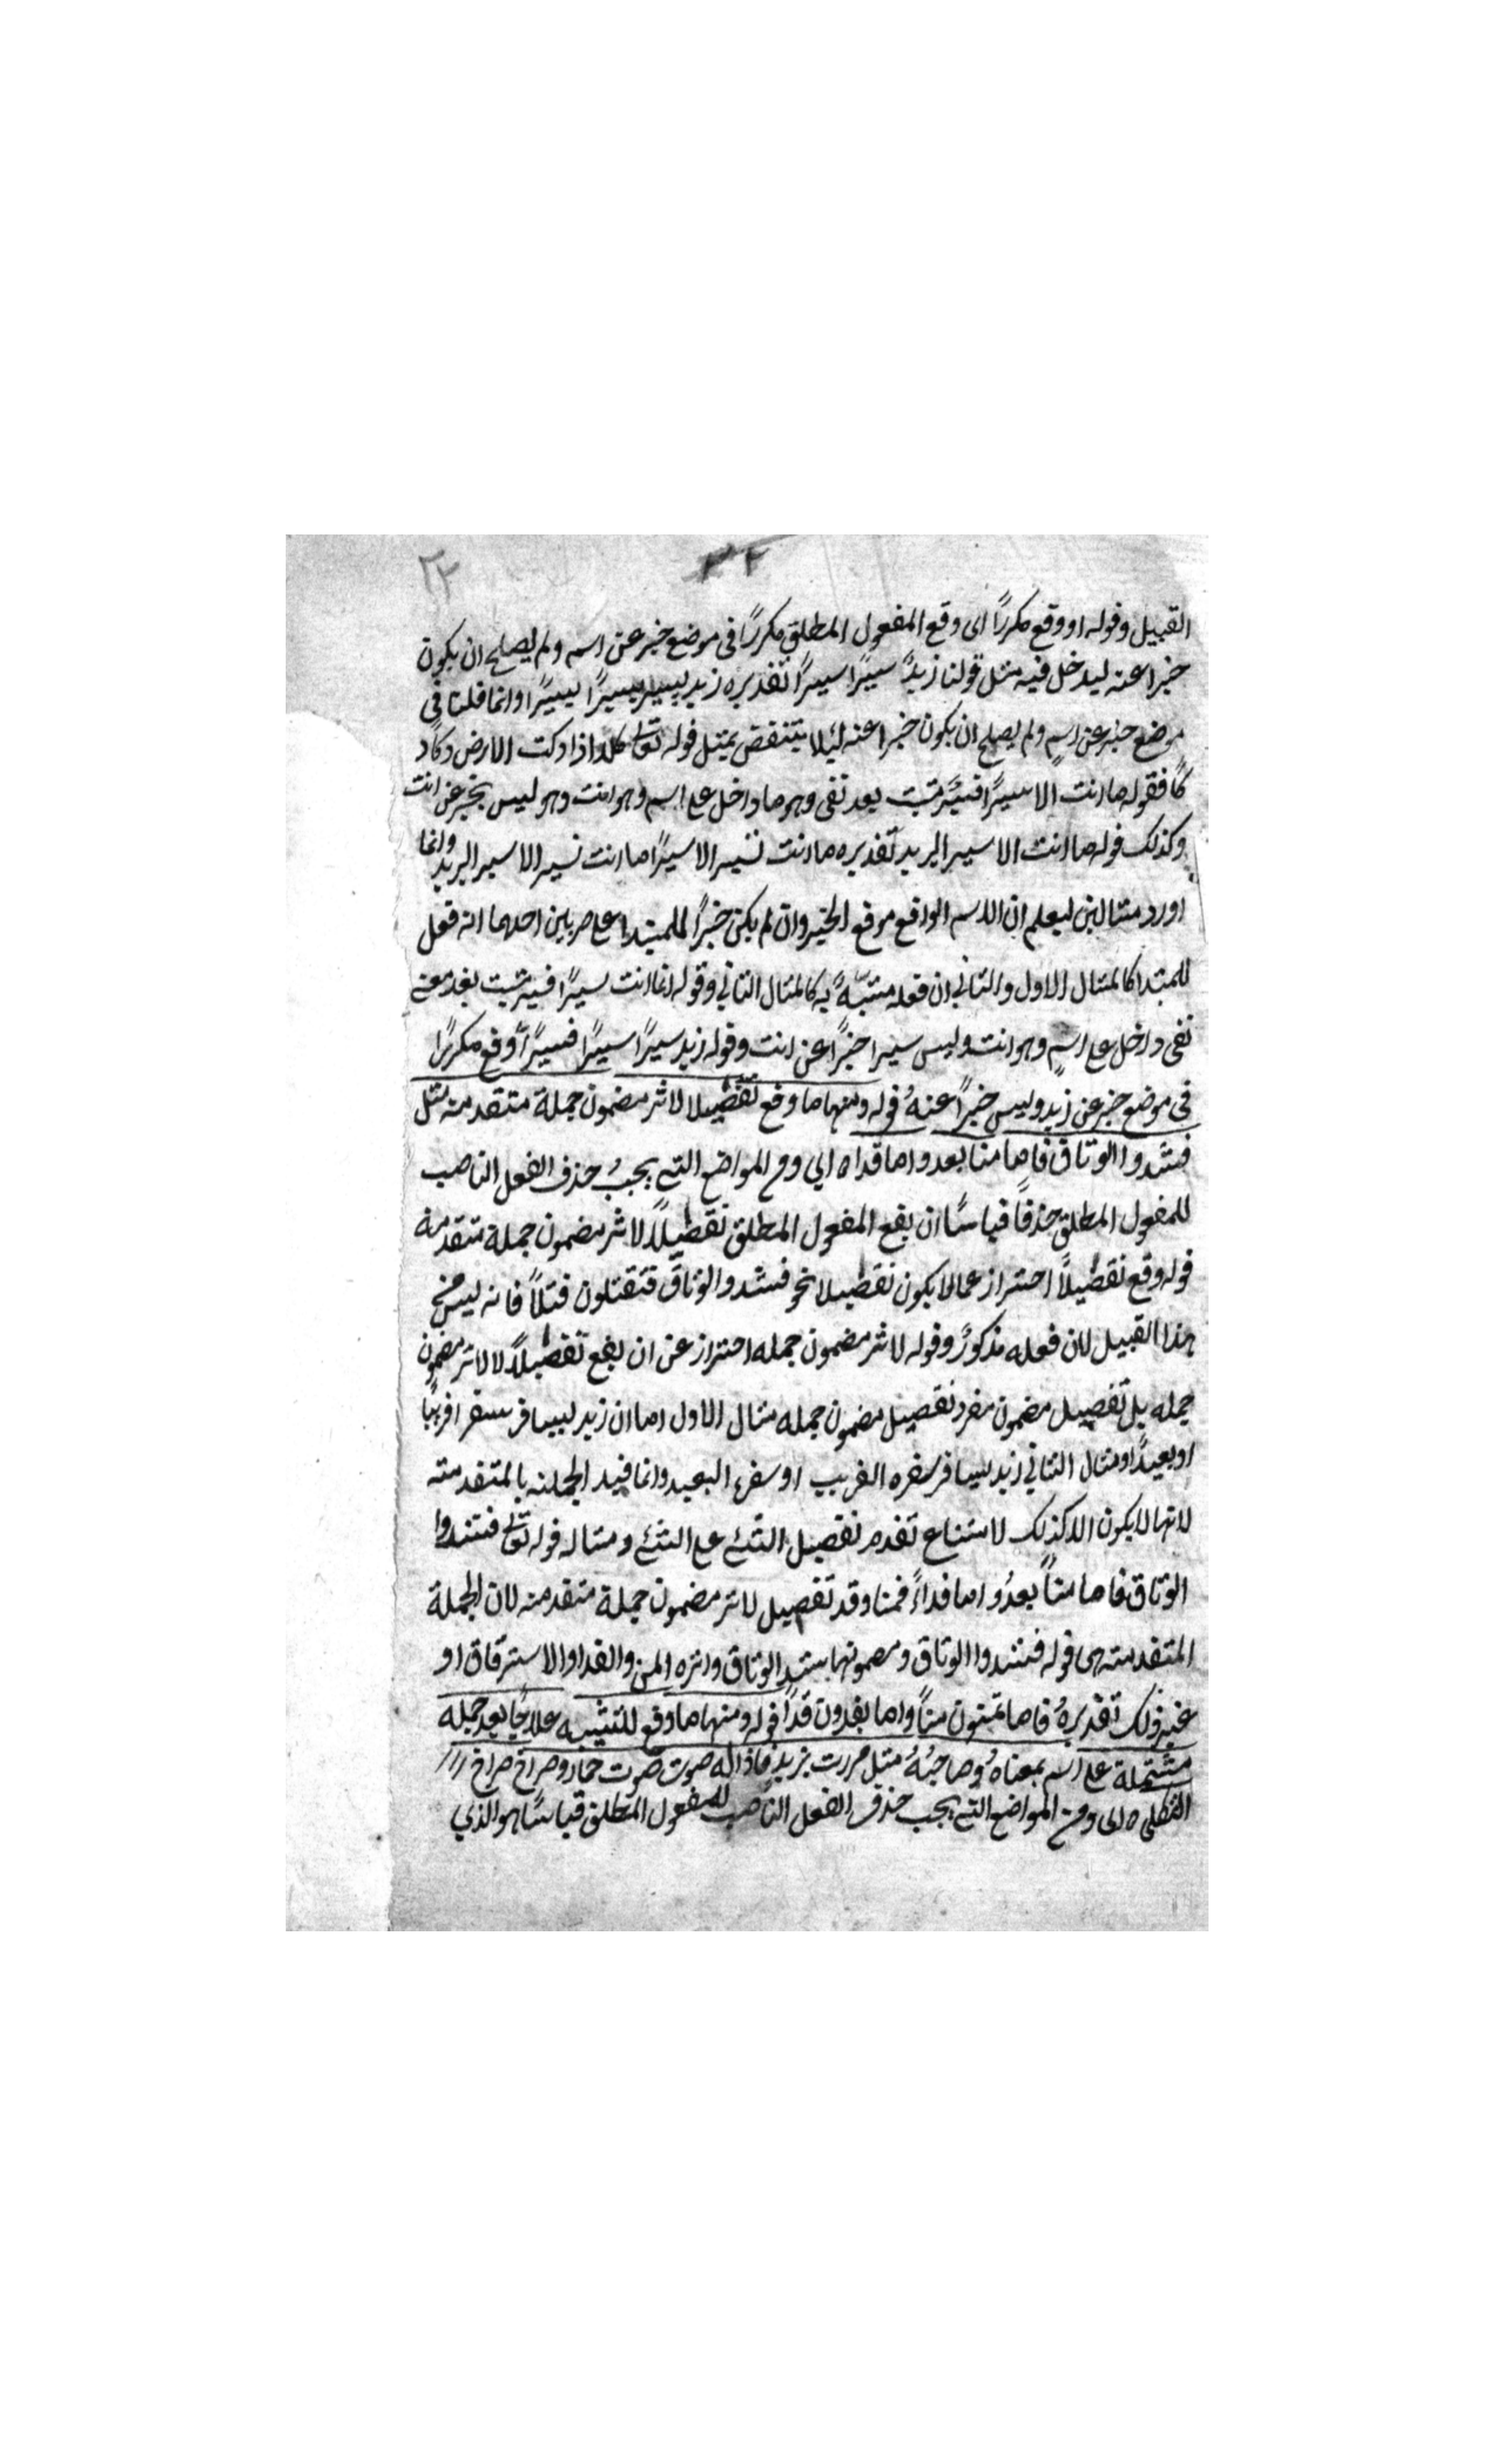 ٣٢ ٣٢
القبيل وقوله او وقع مكررًا اى وقع المفعول المطلق مكررًا فى موضع خبر عن اسم ولم يصلح ان يكون
خبرا عنه ليدخل فيه مثل قولنا زيدٌ سيرًا سيرًا تقديره زيد يسير سيرًا يسير سيرًا وانما قلنا فى
موضع خبر عن اسمٍ ولم يصلح ان يكون خبرا عنه لئلا ينتقض بمثل قوله تعالى كلا اذا دكت الارض دكًا د
كًا فقوله ما انت الا سيرًا فسيرًا مثبت بعد نفى وهو ما داخل على اسم وهو انت وهو ليس بخبر عن انت
وكذلك قوله ما انت الا سير البريد تقديره ما انت تسير الا سيرًا ما انت تسير الا سير البريد وانما
اورد مثالين ليعلم ان الاسم الواقع موقع الخبر وان لم يكن خبرًا للمبتدا على ضربين احدهما انه فعل
للمبتدا كالمثال الاول والثانى ان فعله مشبهٌ به كالمثال الثانى وقوله انما انت سيرًا فسير مثبت بعد معنى
نفى داخل على اسمٍ وهو انت وليس سيرا خبرًا عن انت وقوله زيد سيرًا سيرًا فسيرًا وقع مكررًا
فى موضع خبر عن زيد وليس خبرًا عنهُ قوله ومنها ما وقع تفصيلا لاثر مضمون جملة متقدمة مثل
فشدوا الوثاق فاما منا بعد واما فداء اى ومن المواضع التى يجبُ حذف الفعل الناصب
للمفعول المطلق حذفًا قياسًا ان يقع المفعول المطلق تفصيلًا لاثر مضمون جملة متقدمة
قوله وقع تفصيلًا احتراز عما لا يكون تفصيلا نحو فشدوا الوثاق فتقتلون قتلًا فانه ليس من
هذا القبيل لان فعله مذكورٌ وقوله لاثر مضمون جمله احتراز عن ان يقع تفصيلًا لا لاثر مضمون
جمله بل تفصيل مضمون مفرد تفصيل مضمون جمله مثال الاول اما ان زيد يسافر سفرا قريبًا
او بعيدًا ومثال الثانى زيد يسافر سفره القريب او سفره البعيد وانما قيد الجملة بالمتقدمة
لانها لا يكون الا كذلك لامتناع تقدم تفصيل الشئ على الشئ ومثاله قوله تعالى فشدوا
الوثاق فاما منًا بعدُ واما فداءً فمنا وقد تفصيل لاثر مضمون جملة متقدمة لان الجملة
المتقدمة هى قوله فشدوا الوثاق ومضمونها شد الوثاق واثره المن والفدا والاسترقاق او
غير ذلك تقديرهُ فاما تمنون منًا واما يفدون فدًا قوله ومنها ما وقع للتشبيه علاجًا بعد جمله
مشتملة على اسم بمعناهُ وصاحبُهُ مثل مررت بزيد فاذا له صوت صوت حمار وصراخ صراخ
الثكلى ه اى ومن المواضع التى يجب حذف الفعل الناصب للمفعول المطلق قياسًا هو الذي